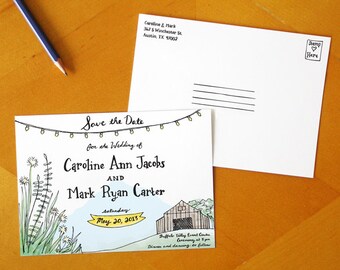 Caroline & Mark
Austin, TX
Save the Date
for the Wedding of
Caroline Ann Jacobs
AND
Mark Ryan Carter
Saturday
May 20, 2017
Buffalo Valley Event Center
Ceremony at 5 pm
Dinner and dancing to follow